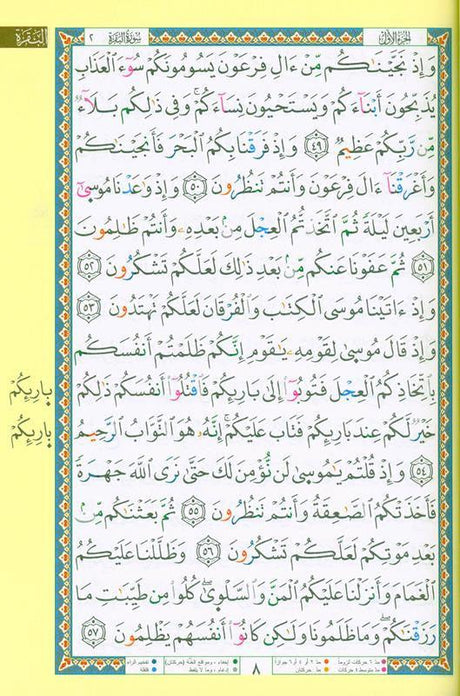 البَقَرَة
الجزء الأول
سورة البقرة
٢
وَإِذْ نَجَّيْنَٰكُم مِّنْ ءَالِ فِرْعَوْنَ يَسُومُونَكُمْ سُوٓءَ ٱلْعَذَابِ
يُذَبِّحُونَ أَبْنَآءَكُمْ وَيَسْتَحْيُونَ نِسَآءَكُمْ ۚ وَفِى ذَٰلِكُم بَلَآءٌ
مِّن رَّبِّكُمْ عَظِيمٌ ٤٩ وَإِذْ فَرَقْنَا بِكُمُ ٱلْبَحْرَ فَأَنجَيْنَٰكُمْ
وَأَغْرَقْنَآ ءَالَ فِرْعَوْنَ وَأَنتُمْ تَنظُرُونَ ٥٠ وَإِذْ وَٰعَدْنَا مُوسَىٰٓ
أَرْبَعِينَ لَيْلَةً ثُمَّ ٱتَّخَذْتُمُ ٱلْعِجْلَ مِنۢ بَعْدِهِۦ وَأَنتُمْ ظَٰلِمُونَ
٥١ ثُمَّ عَفَوْنَا عَنكُم مِّنۢ بَعْدِ ذَٰلِكَ لَعَلَّكُمْ تَشْكُرُونَ ٥٢
وَإِذْ ءَاتَيْنَا مُوسَى ٱلْكِتَٰبَ وَٱلْفُرْقَانَ لَعَلَّكُمْ تَهْتَدُونَ ٥٣
وَإِذْ قَالَ مُوسَىٰ لِقَوْمِهِۦ يَٰقَوْمِ إِنَّكُمْ ظَلَمْتُمْ أَنفُسَكُم
بِٱتِّخَاذِكُمُ ٱلْعِجْلَ فَتُوبُوٓا۟ إِلَىٰ بَارِئِكُمْ فَٱقْتُلُوٓا۟ أَنفُسَكُمْ ذَٰلِكُمْ
خَيْرٌ لَّكُمْ عِندَ بَارِئِكُمْ فَتَابَ عَلَيْكُمْ ۚ إِنَّهُۥ هُوَ ٱلتَّوَّابُ ٱلرَّحِيمُ
٥٤ وَإِذْ قُلْتُمْ يَٰمُوسَىٰ لَن نُّؤْمِنَ لَكَ حَتَّىٰ نَرَى ٱللَّهَ جَهْرَةً
فَأَخَذَتْكُمُ ٱلصَّٰعِقَةُ وَأَنتُمْ تَنظُرُونَ ٥٥ ثُمَّ بَعَثْنَٰكُم مِّنۢ
بَعْدِ مَوْتِكُمْ لَعَلَّكُمْ تَشْكُرُونَ ٥٦ وَظَلَّلْنَا عَلَيْكُمُ
ٱلْغَمَامَ وَأَنزَلْنَا عَلَيْكُمُ ٱلْمَنَّ وَٱلسَّلْوَىٰ ۖ كُلُوا۟ مِن طَيِّبَٰتِ مَا
رَزَقْنَٰكُمْ ۖ وَمَا ظَلَمُونَا وَلَٰكِن كَانُوٓا۟ أَنفُسَهُمْ يَظْلِمُونَ ٥٧
بارِيِكُمْ
بارِيِكُمْ
مد ٦ حركات لزوماً
مد ٢ أو ٤ أو ٦ جوازاً
إخفاء، ومواقع الغنة (حركتان)
تفخيم الراء
مد حركتان
إدغام، وما لا يلفظ
قلقلة
٨